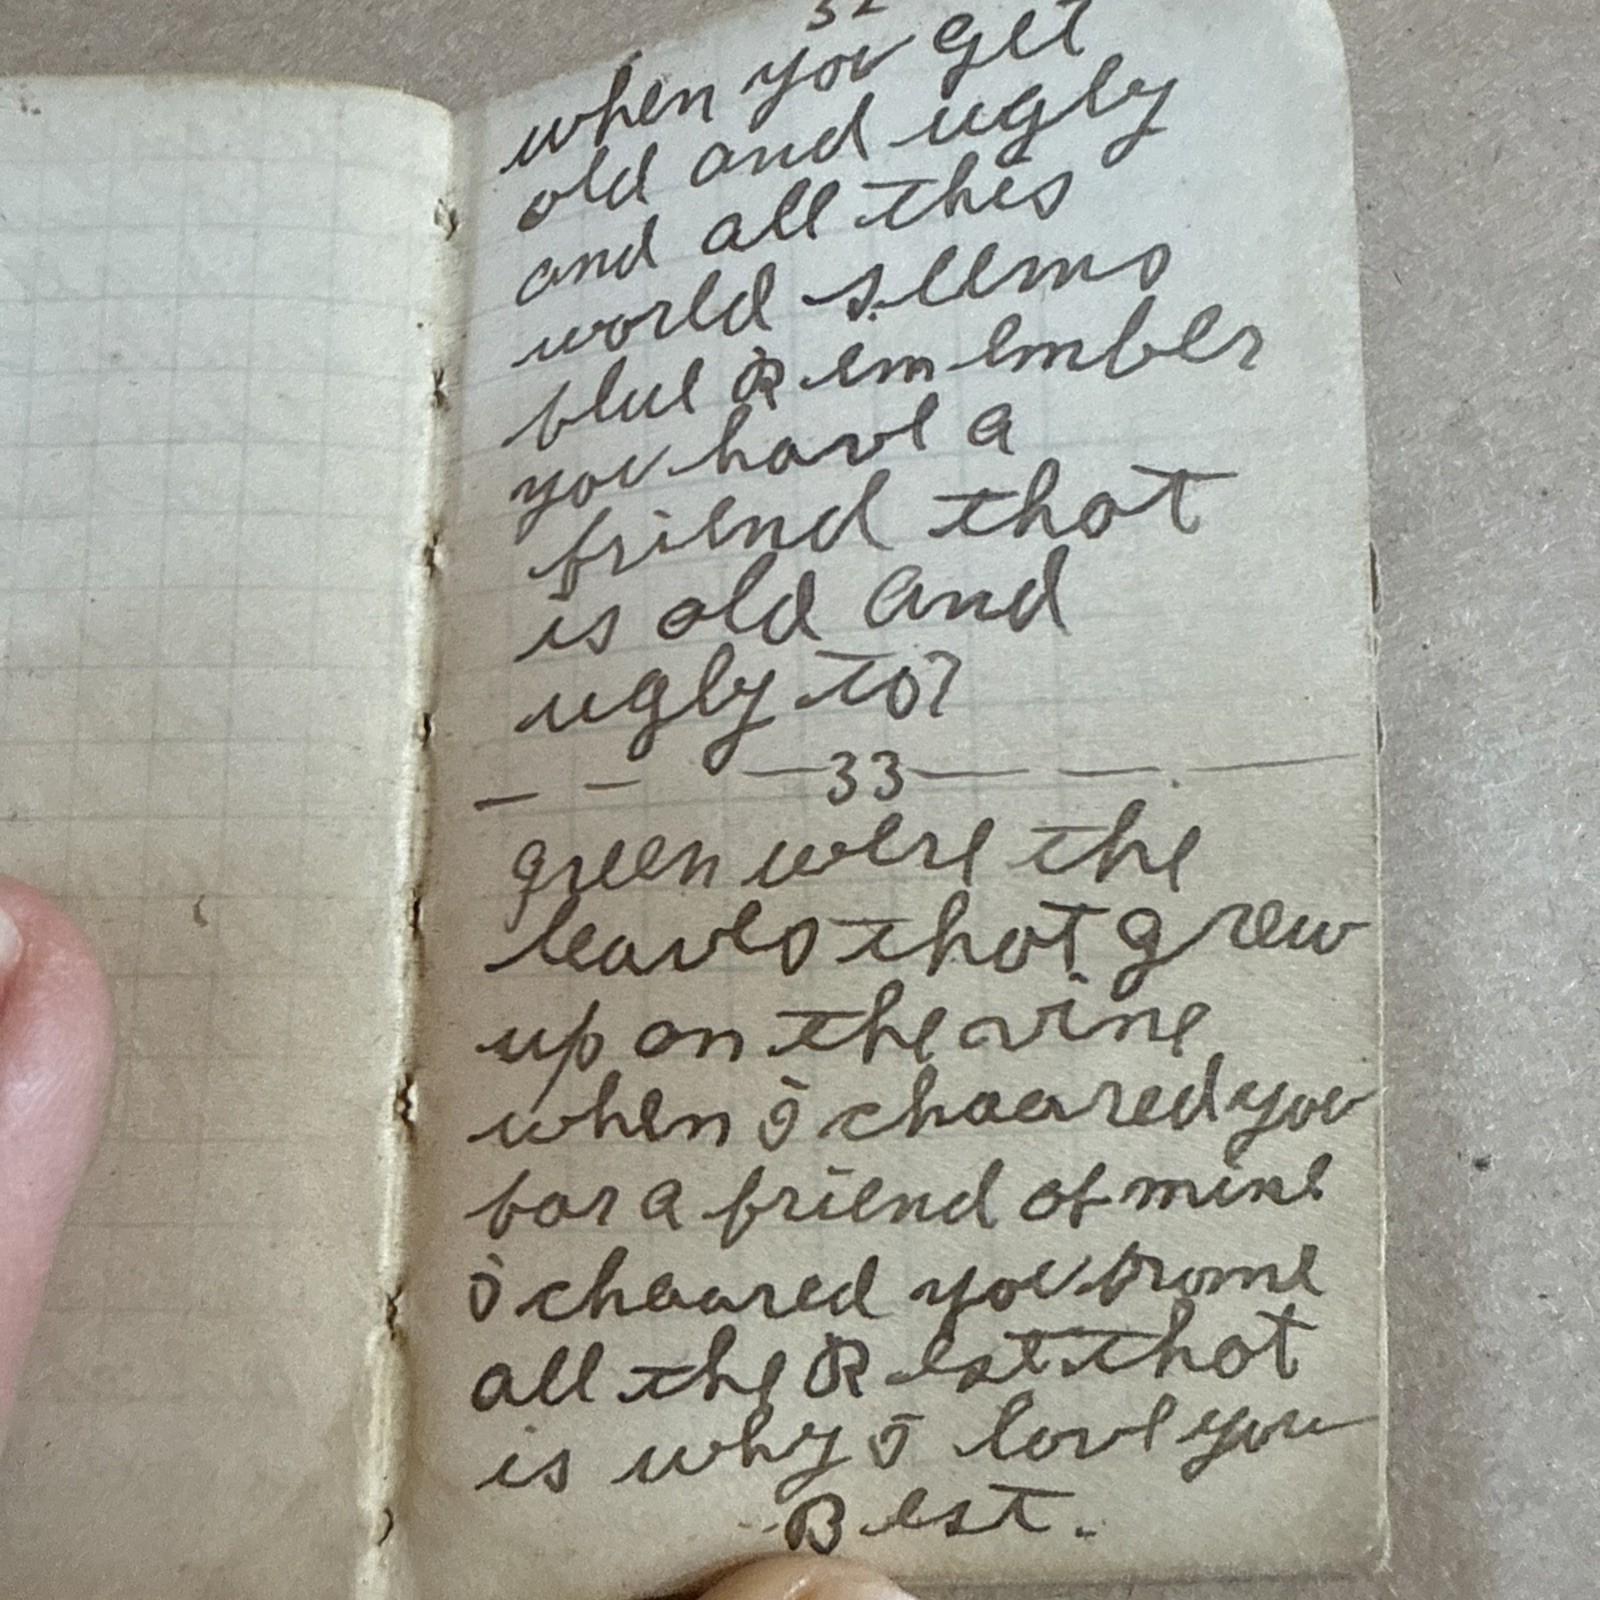 32
when you get
old and ugly
and all this
world seems
blue Remember
you have a
friend that
is old and
ugly to?
— — — 33 — — —
green were the
leaves that grew
up on the vine
when i chaared you
for a friend of mine
i chaared you frome
all the Rest that
is why i love you
Best.